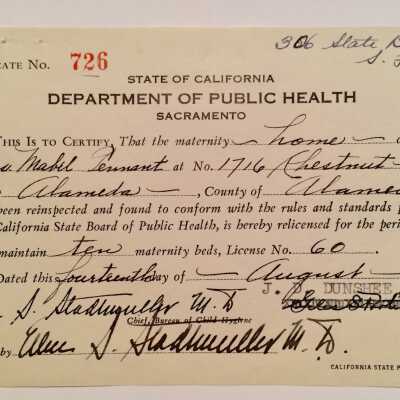 306 State
CATE No. 726
STATE OF CALIFORNIA
DEPARTMENT OF PUBLIC HEALTH
SACRAMENTO
THIS IS TO CERTIFY, That the maternity home
Mabel Tennant at No. 1716 Chestnut
Alameda, County of Alame
been reinspected and found to conform with the rules and standards
California State Board of Public Health, is hereby relicensed for the peri
maintain ten maternity beds, License No. 60.
Dated this fourteenth day of August
J. D. DUNSHEE
S. Stadtmuller M. D
Chief, Bureau of Child Hygiene
by Ellen S. Stadtmuller M. D.
CALIFORNIA STATE P